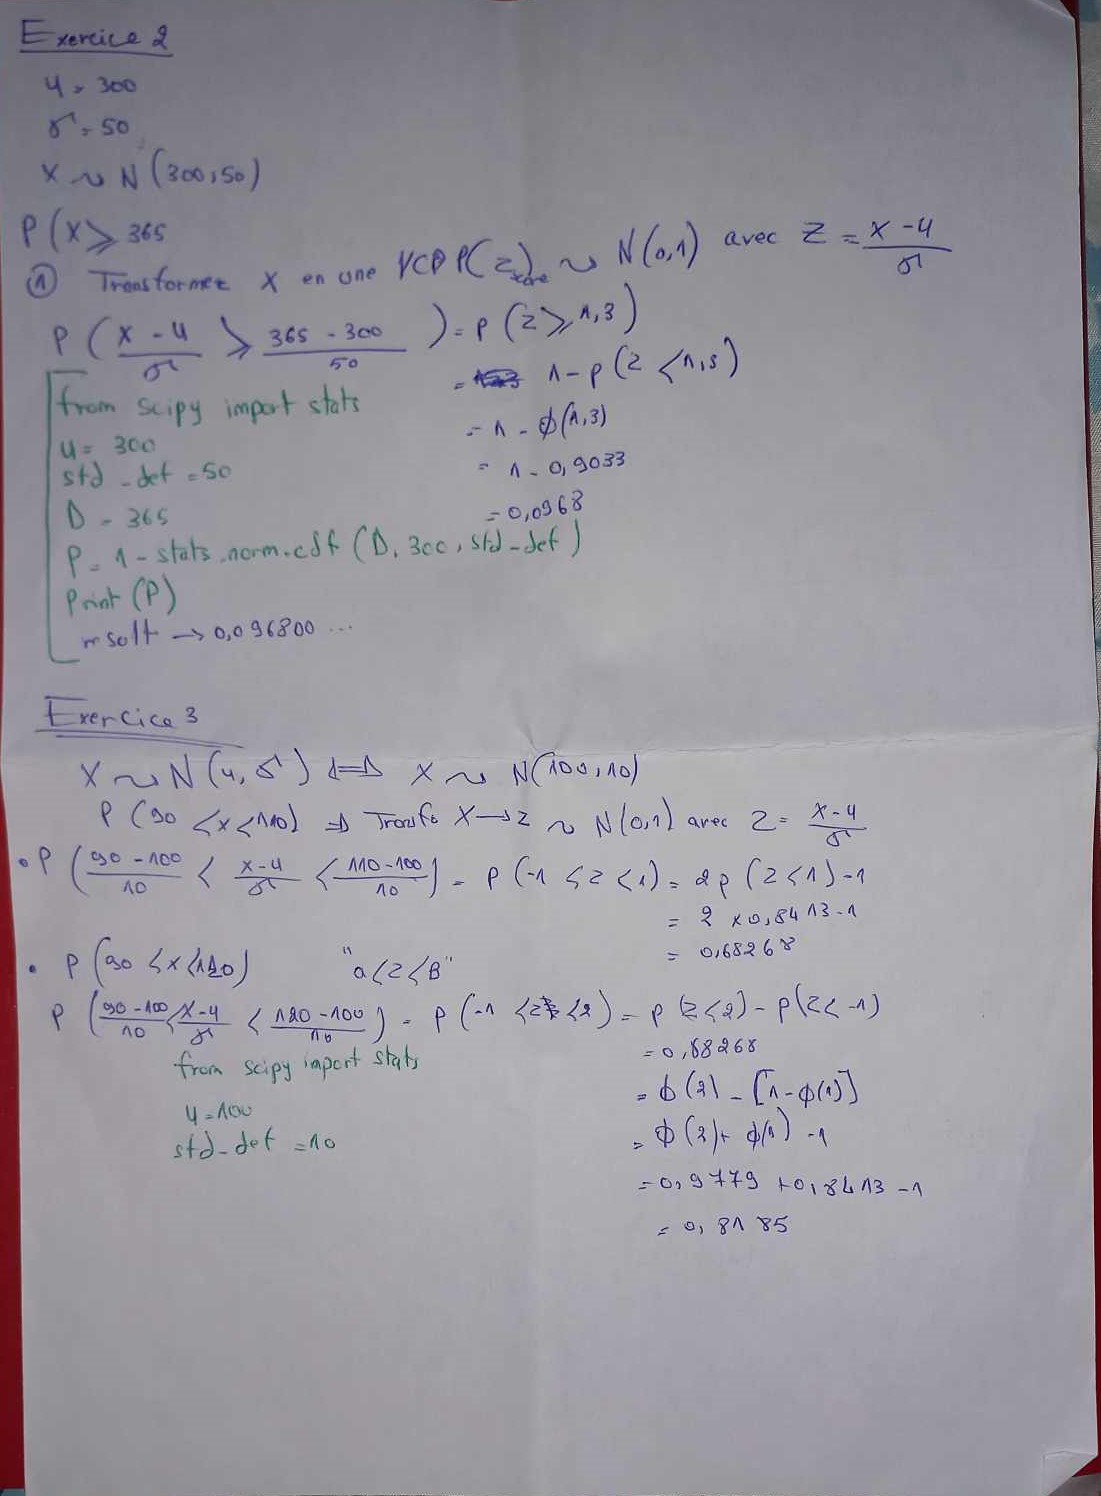 Exercice 2
μ = 300
σ = 50
X ~ N(300, 50)
P(X ⩾ 365
① Transformez X en une VCP P(Z score) ~ N(0,1) avec Z = (X - μ)/σ
P((X - μ)/σ ⩾ (365 - 300)/50) = P(Z ⩾ 1,3)
= 1 - P(Z < 1,3)
= 1 - Φ(1,3)
= 1 - 0,9033
= 0,0968
from scipy import stats
μ = 300
std_def = 50
D = 365
P = 1 - stats.norm.cdf(D, 300, std_def)
Print(P)
result → 0,096800 ...
Exercice 3
X ~ N(μ, σ) ⟺ X ~ N(100, 10)
P(90 < X < 110) ⇒ Transfo X → Z ~ N(0,1) avec Z = (X - μ)/σ
• P((90 - 100)/10 < (X - μ)/σ < (110 - 100)/10) = P(-1 < Z < 1) = 2P(Z < 1) - 1
= 2 × 0,8413 - 1
= 0,68268
• P(90 < X < 120) "a < Z < B"
P((90 - 100)/10 < (X - μ)/σ < (120 - 100)/10) = P(-1 < Z < 2) = P(Z < 2) - P(Z < -1)
= 0,68268
= Φ(2) - [1 - Φ(1)]
= Φ(2) + Φ(1) - 1
= 0,9779 + 0,8413 - 1
= 0,8185
from scipy import stats
μ = 100
std_def = 10